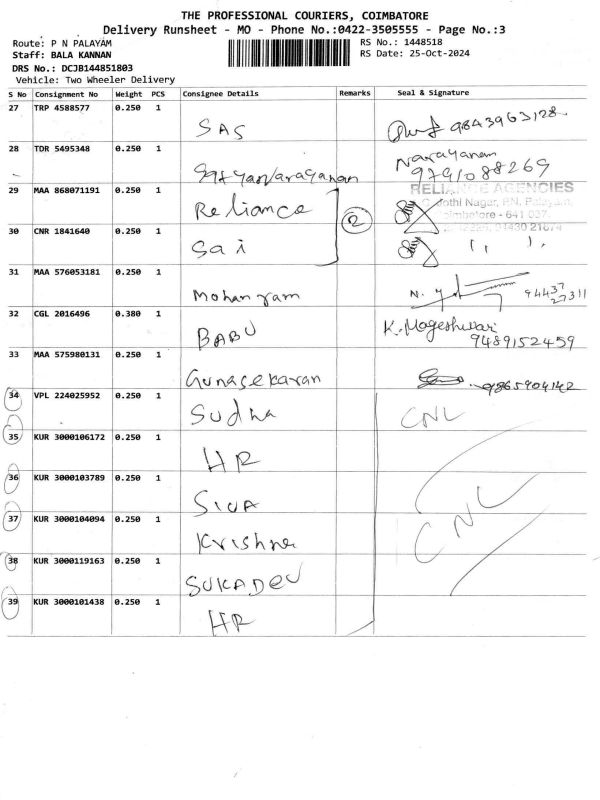 THE PROFESSIONAL COURIERS, COIMBATORE
Delivery Runsheet - MO - Phone No.:0422-3505555 - Page No.:3
Route: P N PALAYAM RS No.: 1448518
Staff: BALA KANNAN RS Date: 25-Oct-2024
DRS No.: DCJB144851803
Vehicle: Two Wheeler Delivery
S No Consignment No Weight PCS Consignee Details Remarks Seal & Signature
27 TRP 4588577 0.250 1 SAS 9843963128
28 TDR 5495348 0.250 1 Sathyanarayanan Narayanan 9791088269
29 MAA 868071191 0.250 1 Reliance 2 RELIANCE AGENCIES
Jothi Nagar, P.N. Palayam,
Coimbatore - 641 037.
30 CNR 1841640 0.250 1 Sai
31 MAA 576053181 0.250 1 Mohan ram 94437 27311
32 CGL 2016496 0.380 1 BABU K. Mageshwari 9489152459
33 MAA 575980131 0.250 1 Gunasekaran 9865904142
34 VPL 224025952 0.250 1 Sudha CNL
35 KUR 3000106172 0.250 1 HR
36 KUR 3000103789 0.250 1 SIVA CNL
37 KUR 3000104094 0.250 1 Krishna
38 KUR 3000119163 0.250 1 SUKADEV
39 KUR 3000101438 0.250 1 HR